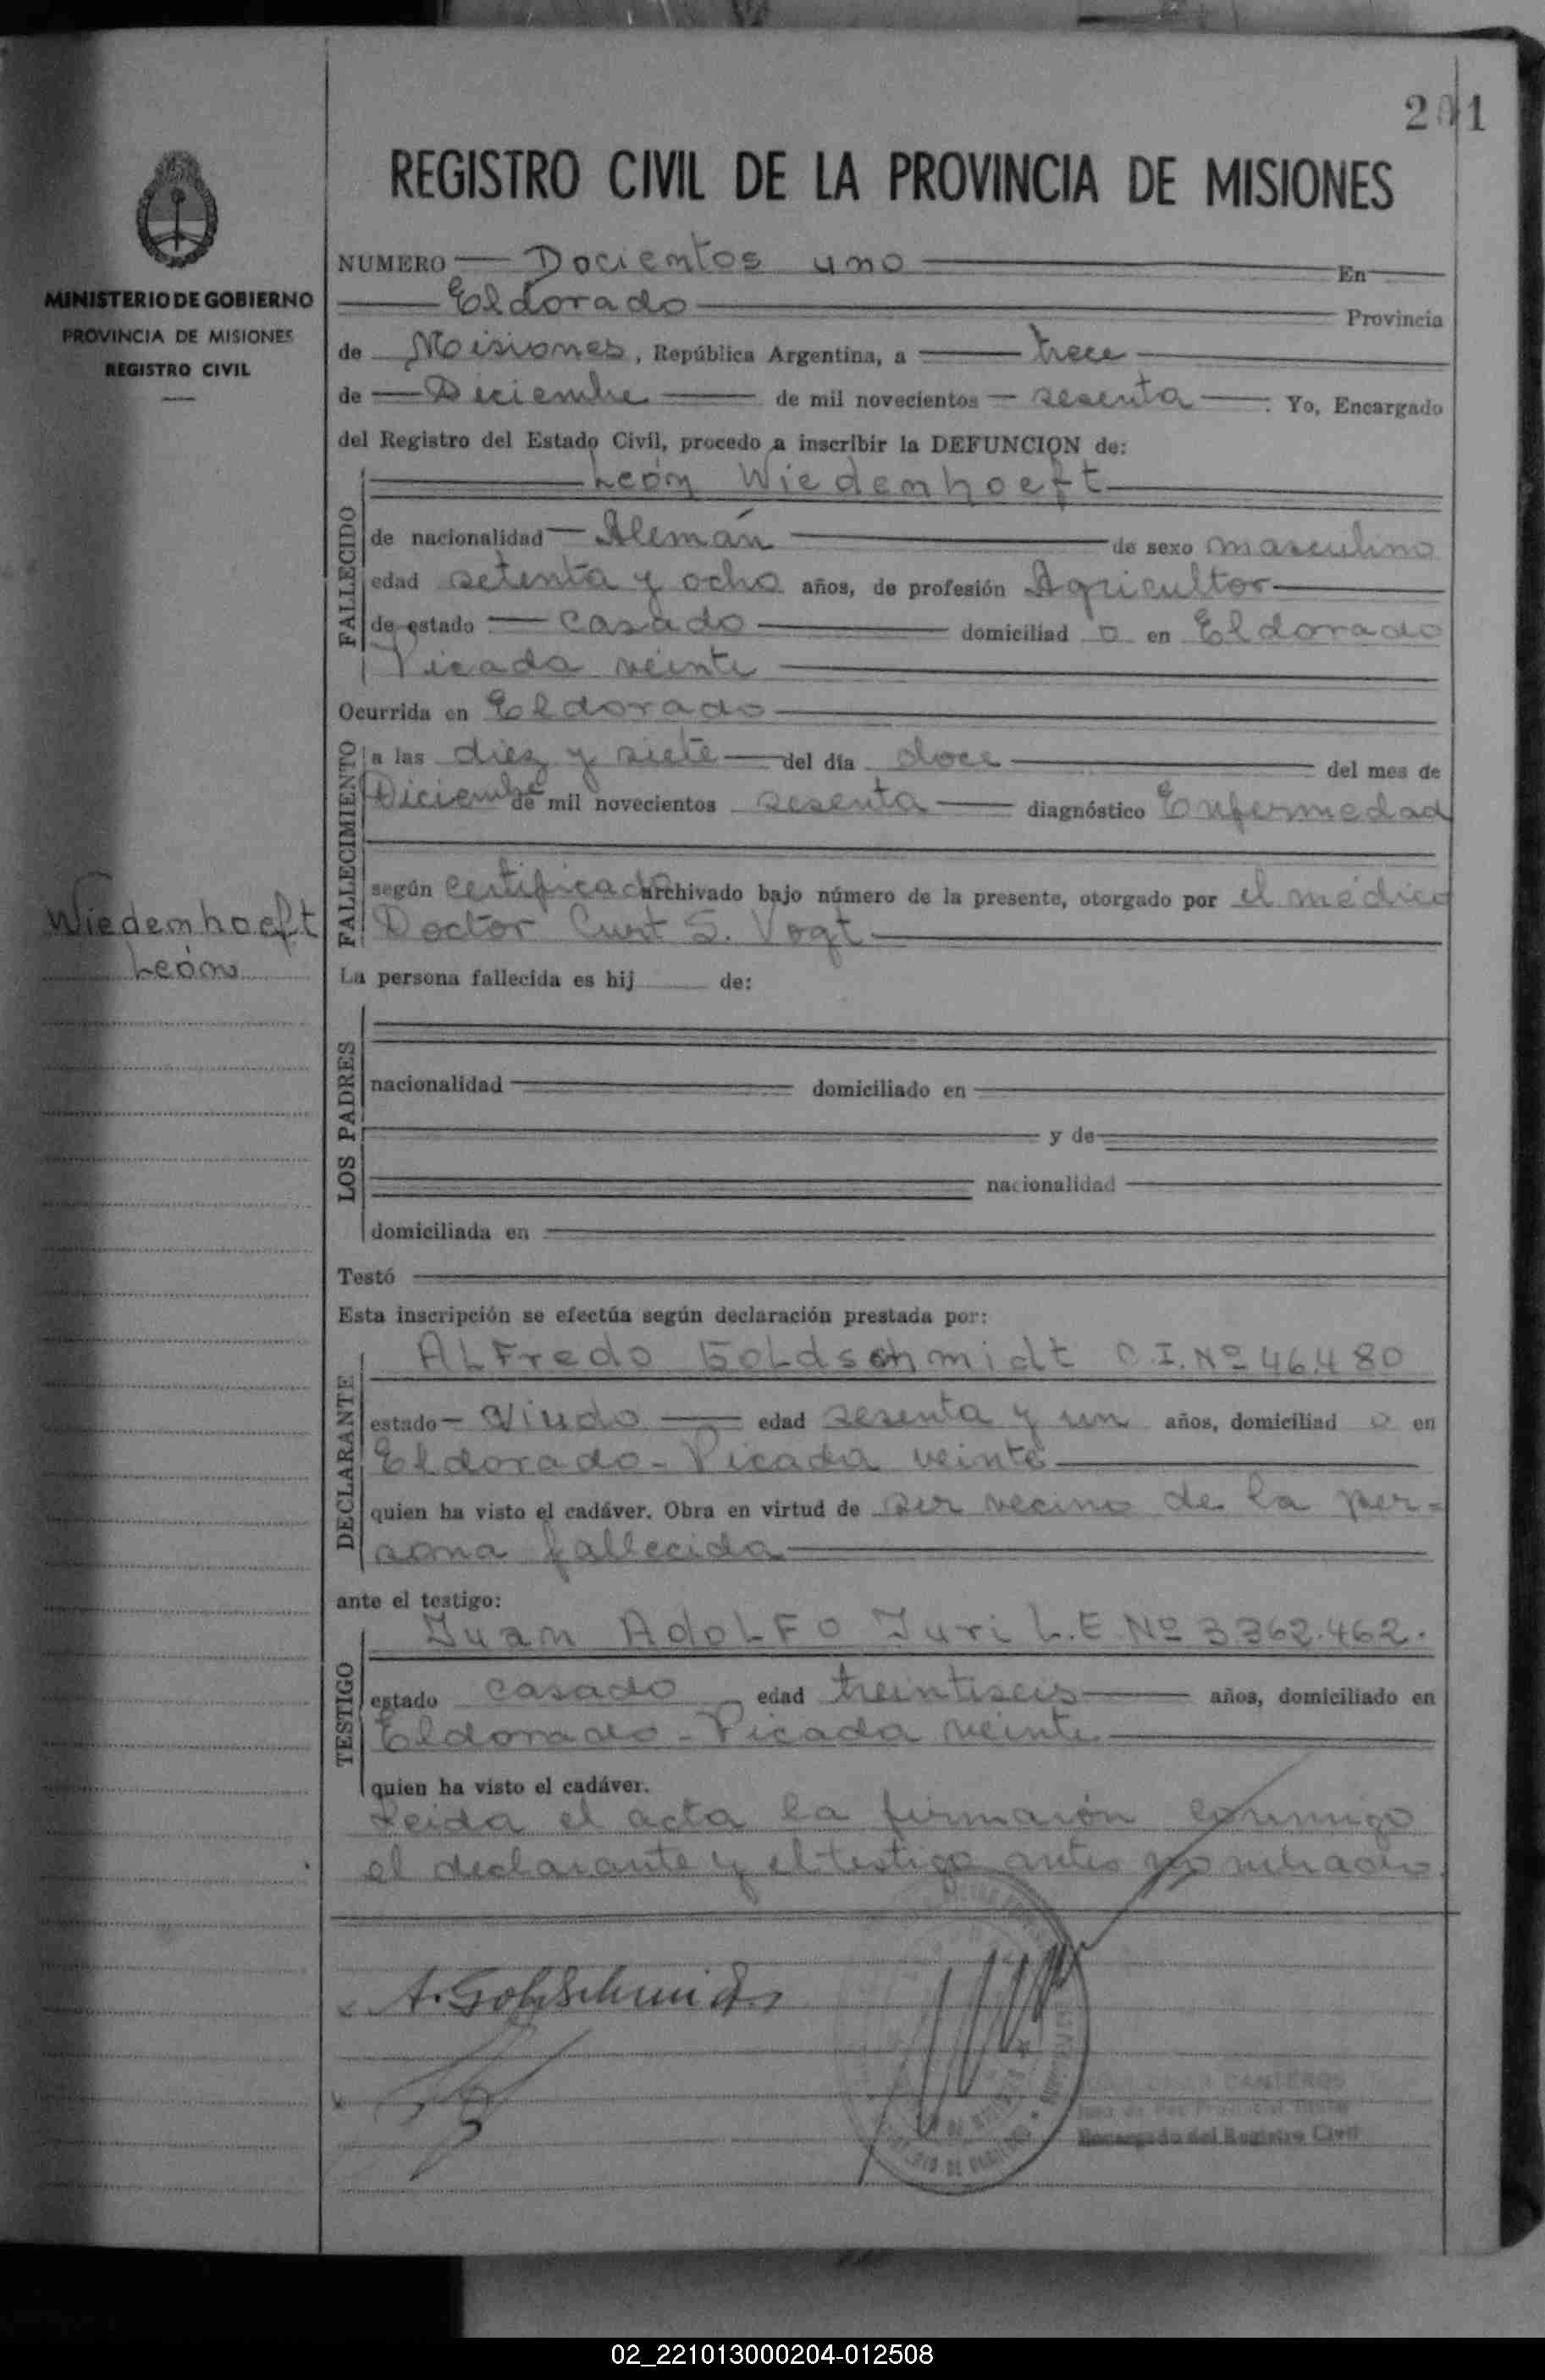 201
REGISTRO CIVIL DE LA PROVINCIA DE MISIONES
MINISTERIO DE GOBIERNO
PROVINCIA DE MISIONES
REGISTRO CIVIL
NUMERO Docientos uno En
Eldorado Provincia
de Misiones, República Argentina, a trece
de Diciembre de mil novecientos sesenta. Yo, Encargado
del Registro del Estado Civil, procedo a inscribir la DEFUNCION de:
León Wiedenhoeft
FALLECIDO
de nacionalidad Alemán de sexo masculino
edad setenta y ocho años, de profesión Agricultor
de estado casado domiciliad o en Eldorado
Picada veinte
Ocurrida en Eldorado
FALLECIMIENTO
a las diez y siete del día doce del mes de
Diciembre de mil novecientos sesenta diagnóstico Enfermedad
según certificado archivado bajo número de la presente, otorgado por el médico
Doctor Curt S. Vogt
Wiedenhoeft
León
La persona fallecida es hij de:
LOS PADRES
nacionalidad domiciliado en
y de
nacionalidad
domiciliada en
Testó
Esta inscripción se efectúa según declaración prestada por:
DECLARANTE
ALFredo GoLdschmidt C.I. Nº 46.480
estado Viudo edad sesenta y un años, domiciliad o en
Eldorado - Picada veinte
quien ha visto el cadáver. Obra en virtud de ser vecino de la per=
sona fallecida
ante el testigo:
TESTIGO
Juan AdoLFo Juri L.E Nº 3362.462.
estado casado edad treintiseis años, domiciliado en
Eldorado - Picada veinte
quien ha visto el cadáver.
Leida el acta la firmarón conmigo
el declarante y el testigo antes nombrado.
A. Goldschmidt
CANTEROS
Encargado del Registro Civil
02_221013000204-012508